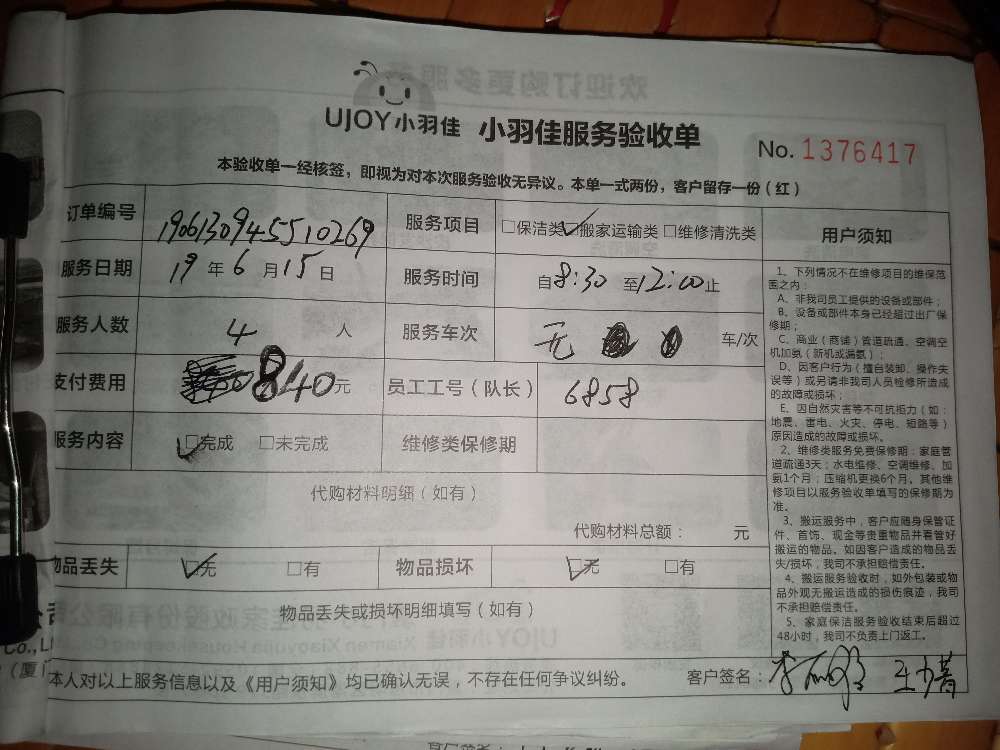 UJOY小羽佳 小羽佳服务验收单
No. 1376417
本验收单一经核签，即视为对本次服务验收无异议。本单一式两份，客户留存一份（红）
订单编号 1906130945510269 服务项目 □保洁类 ☑搬家运输类 □维修清洗类
服务日期 19 年 6 月 15 日 服务时间 自 8:30 至 12:00 止
服务人数 4 人 服务车次 无 车/次
支付费用 840 元 员工工号（队长） 6858
服务内容 ☑完成 □未完成 维修类保修期
代购材料明细（如有）
代购材料总额： 元
物品丢失 ☑无 □有 物品损坏 ☑无 □有
物品丢失或损坏明细填写（如有）
本人对以上服务信息以及《用户须知》均已确认无误，不存在任何争议纠纷。 客户签名：
用户须知
1、下列情况不在维修项目的维保范
围之内：
A、非我司员工提供的设备或部件；
B、设备或部件本身已经超过出厂保
修期；
C、商业（商铺）管道疏通、空调空
机加氨（新机或漏氨）；
D、因客户行为（擅自装卸、操作失
误等）或另请非我司人员检修所造成
的故障或损坏；
E、因自然灾害等不可抗拒力（如：
地震、雷电、火灾、停电、短路等）
原因造成的故障或损坏。
2、维修类服务免费保修期：家庭管
道疏通3天；水电维修、空调维修、加
氨1个月；压缩机更换6个月。其他维
修项目以服务验收单填写的保修期为
准。
3、搬运服务中，客户应随身保管证
件、首饰、现金等贵重物品并看管好
搬运的物品。如因客户造成的物品丢
失/损坏，我司不承担赔偿责任。
4、搬运服务验收时，如外包装或物
品外观无搬运造成的损伤痕迹，我司
不承担赔偿责任。
5、家庭保洁服务验收结束后超过
48小时，我司不负责上门返工。
Co.,L
（厦门